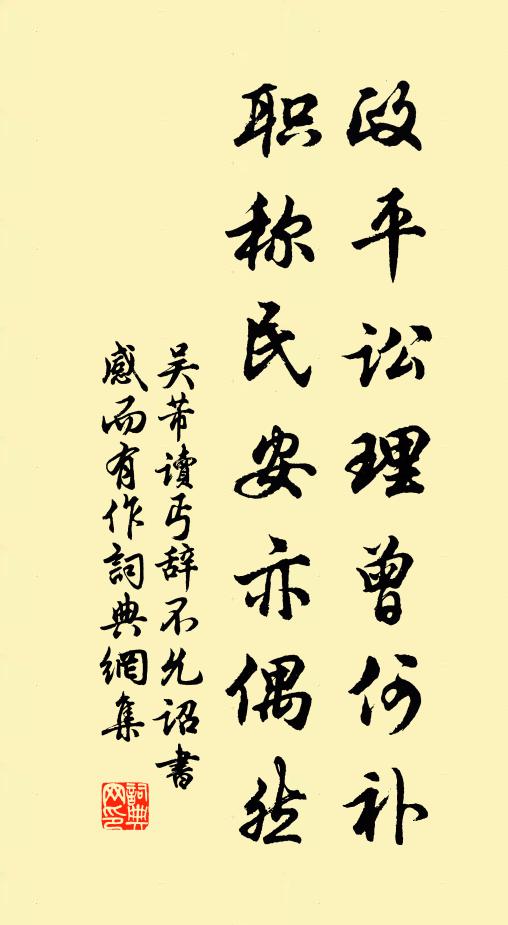 政平讼理曾何补
职称民安亦偶然
吴芾读丐辞不允诏書
感而有作詞典網集
詞典网印